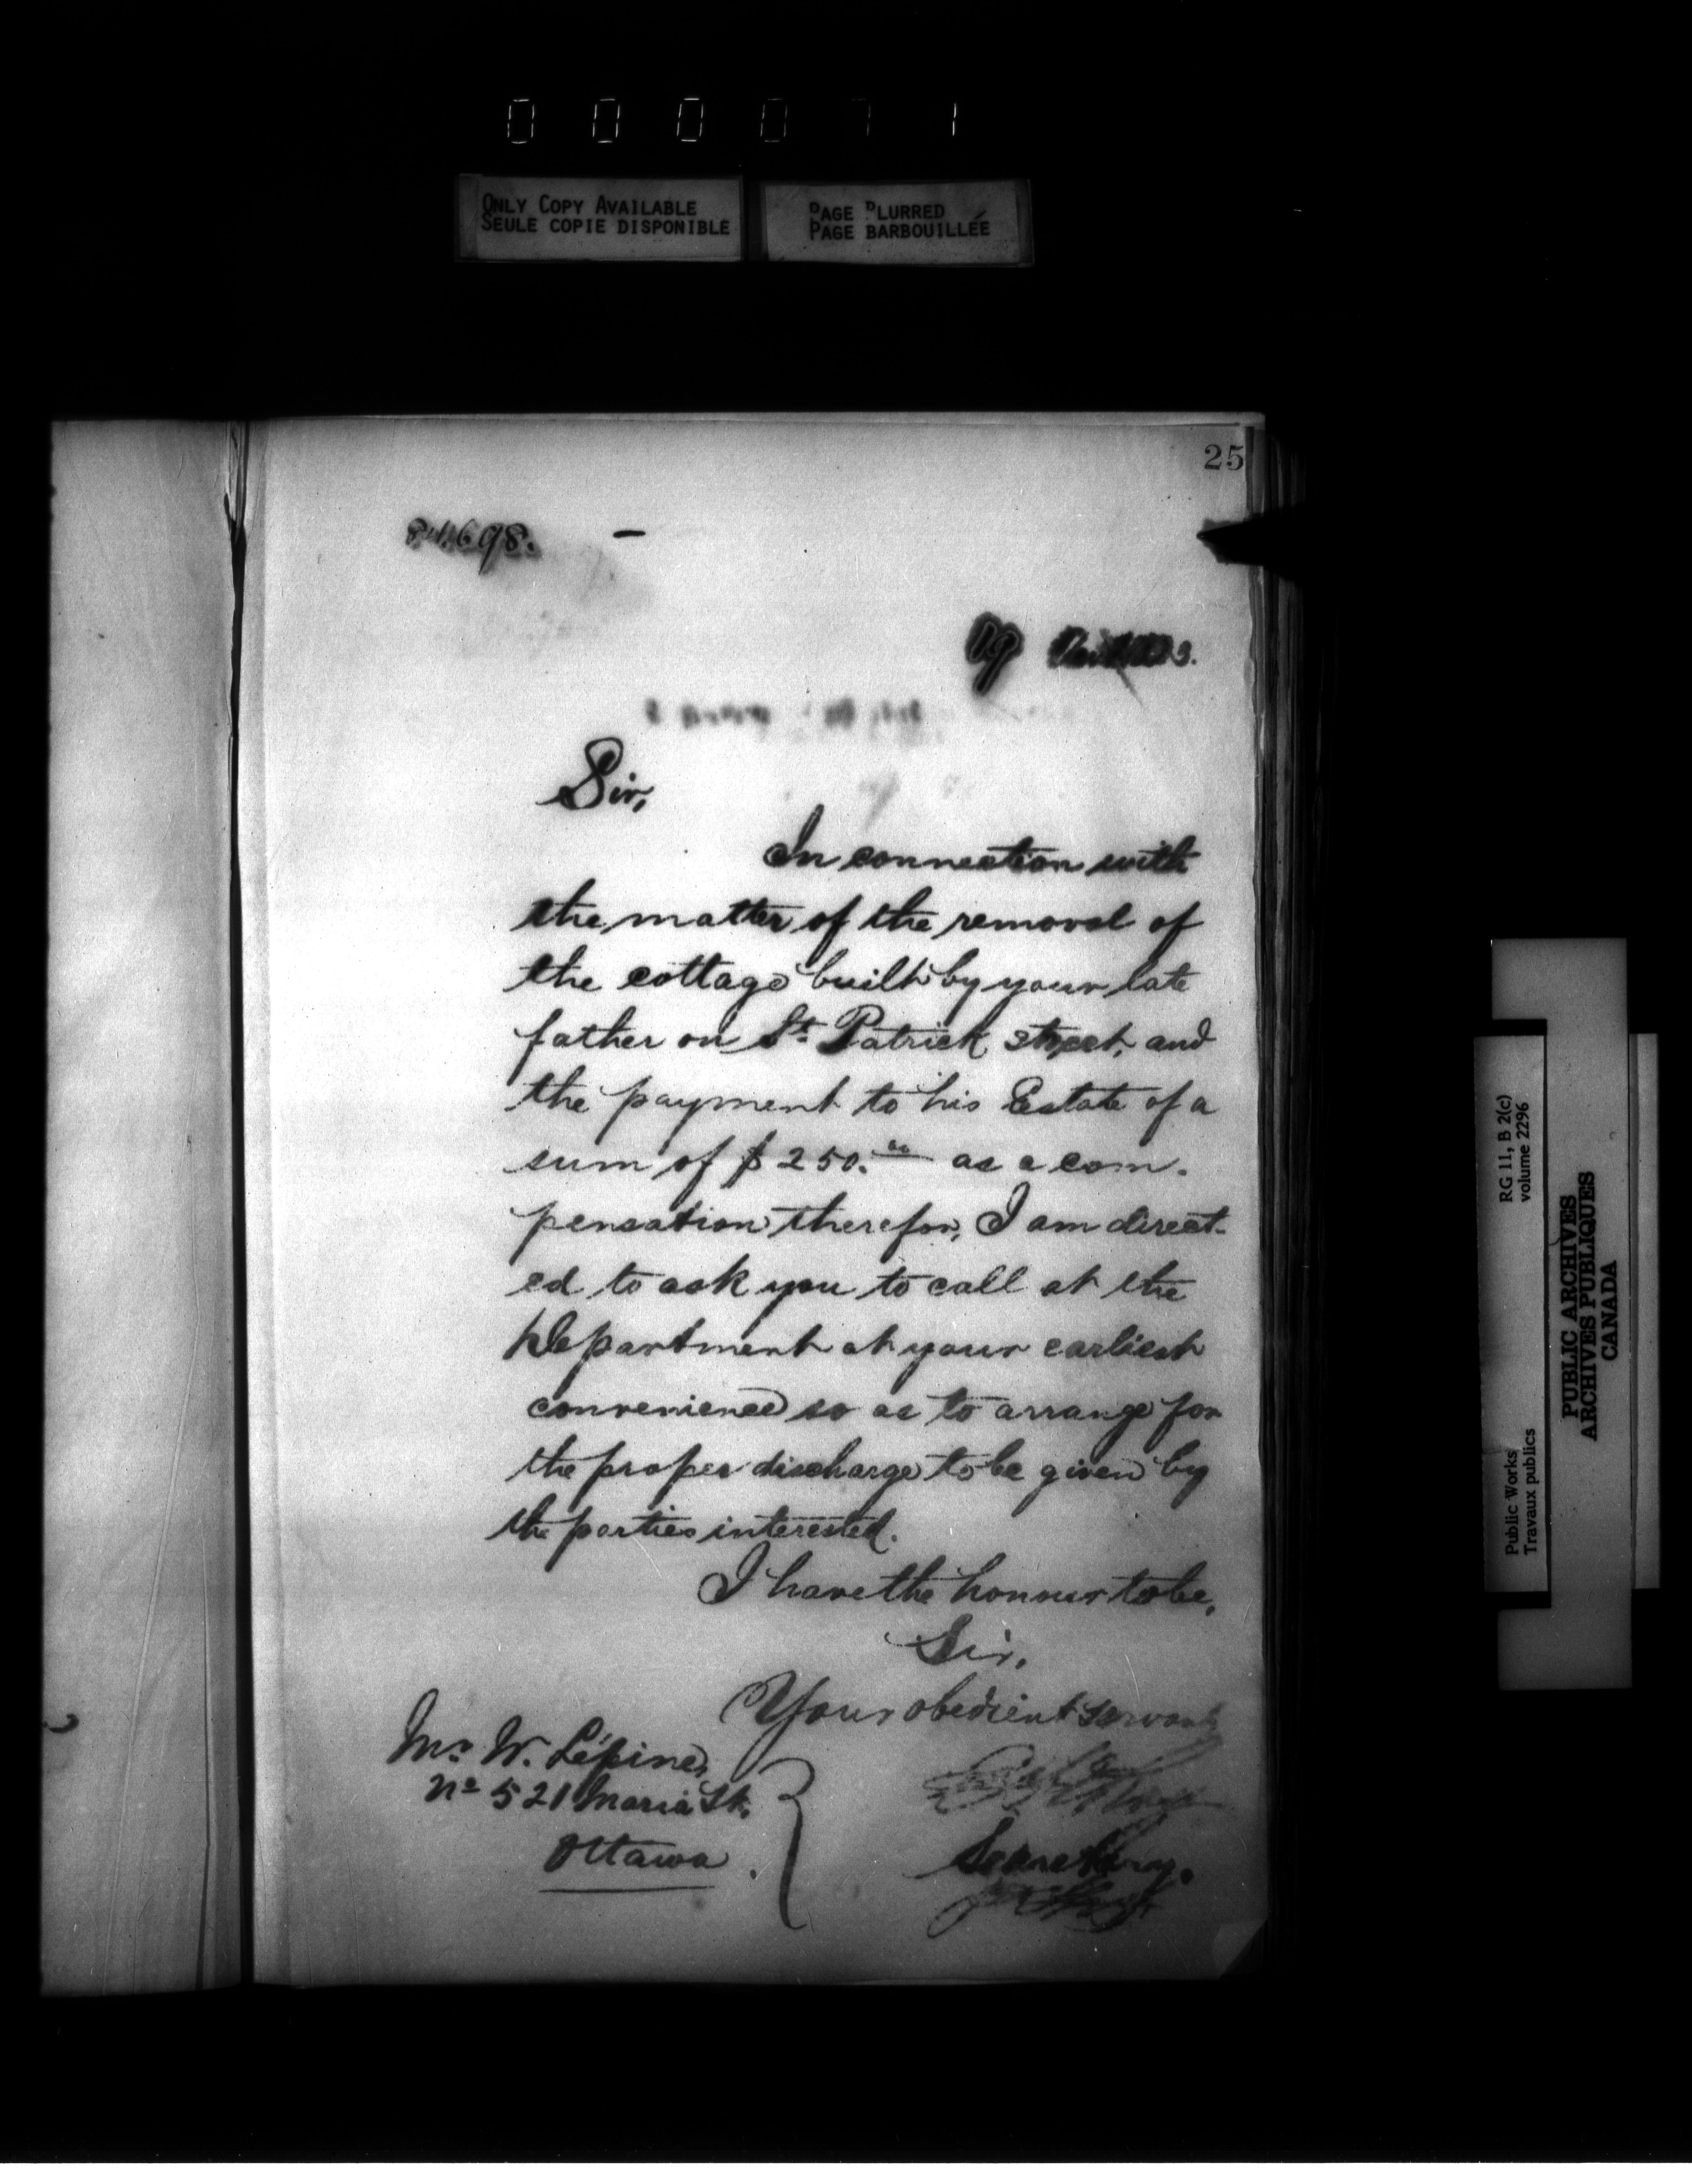 0 0 0 0 7 1
ONLY COPY AVAILABLE
SEULE COPIE DISPONIBLE
PAGE BLURRED
PAGE BARBOUILLÉE
25
Sir,
In connection with
the matter of the removal of
the cottage built by your late
father on St. Patrick street, and
the payment to his Estate of a
sum of $250.00 as a com-
pensation therefor, I am direct-
ed to ask you to call at the
Department at your earliest
convenience so as to arrange for
the proper discharge to be given by
the parties interested.
I have the honour to be,
Sir,
Your obedient servant
Secretary.
Mr. W. Lépine,
No 521 Maria St.
Ottawa.
RG 11, B 2(c)
volume 2296
Public Works
Travaux publics
PUBLIC ARCHIVES
ARCHIVES PUBLIQUES
CANADA